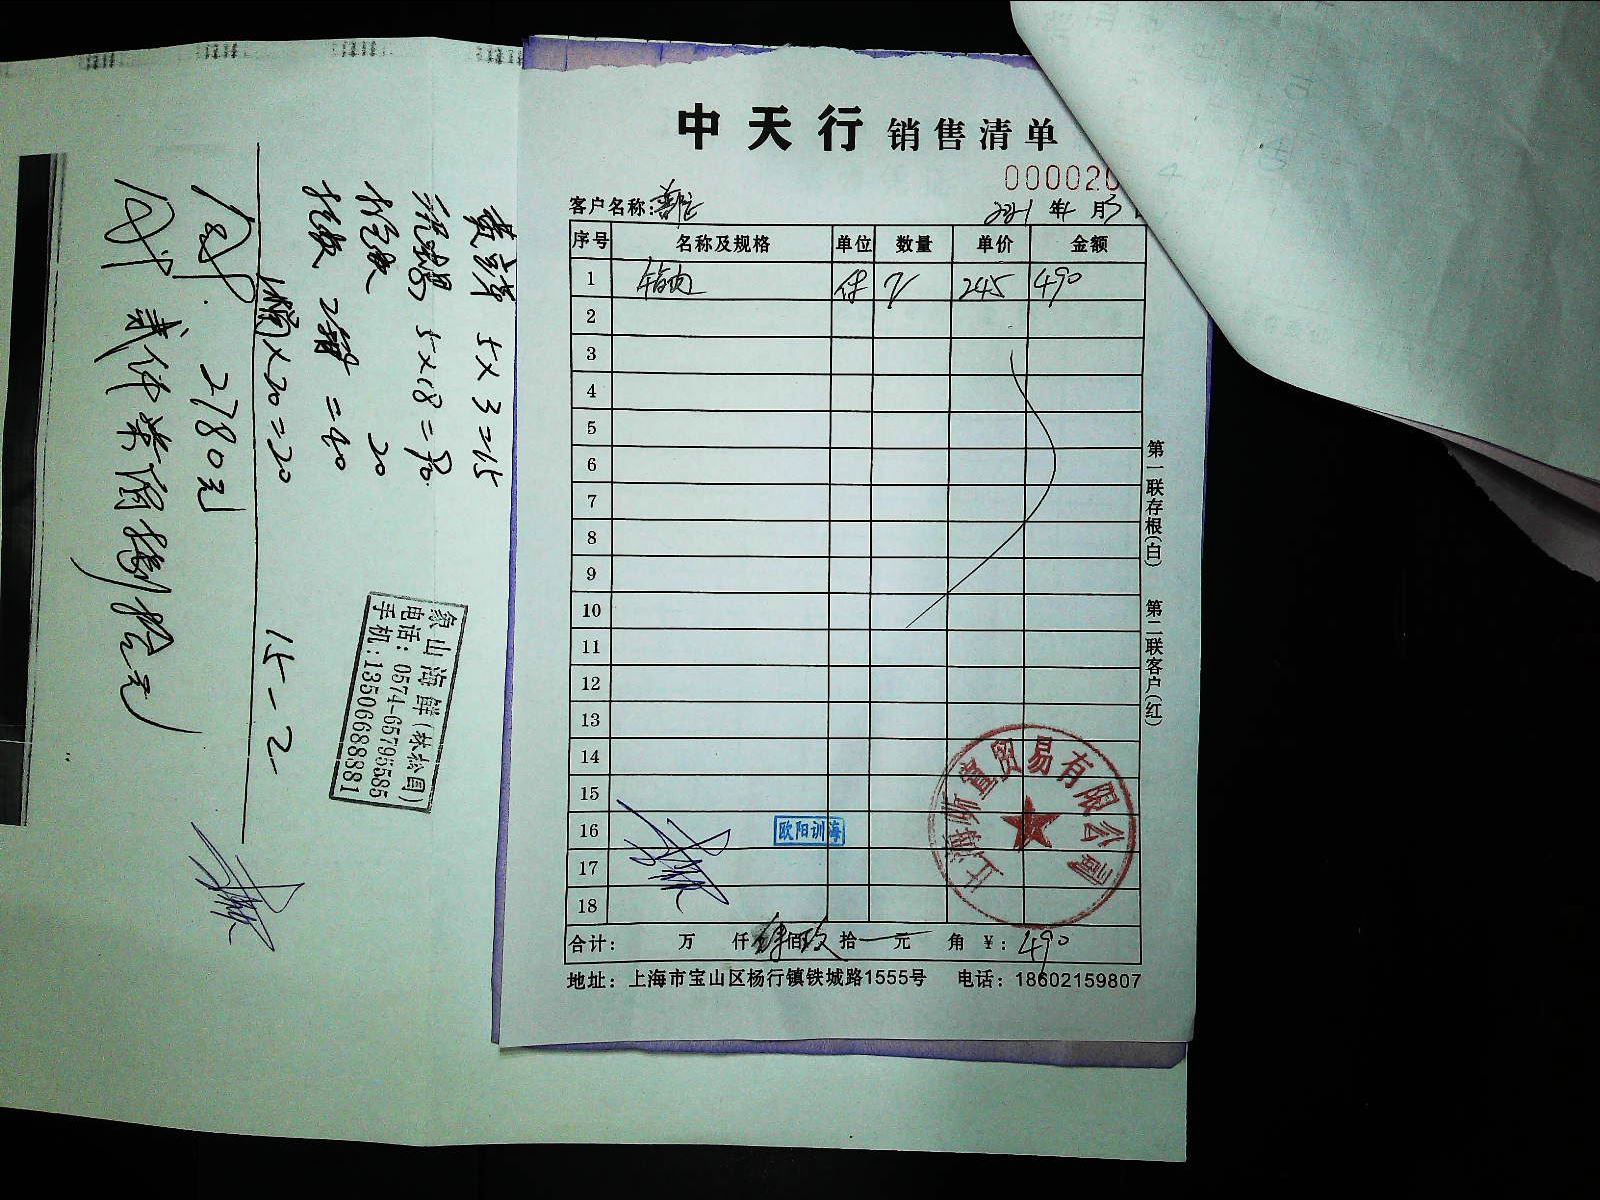 中天行 销售清单
000020
客户名称:
2021年1月3
序号 名称及规格 单位 数量 单价 金额
1 件 2 245 490
2
3
4
5
6
7
8
9
10
11
12
13
14
15
16
17
18
欧阳训海
贸易有限公司
合计: 万 仟 肆佰玖拾 元 角 ¥: 490
地址: 上海市宝山区杨行镇铁城路1555号 电话: 18602159807
第一联存根(白) 第二联客户(红)
5×3=15
5×18=90
20
2箱=40
×20=20
15-2
2780元
贰仟柒佰捌拾元
象山海鲜
电话: 0574-65795585
手机: 13506688881